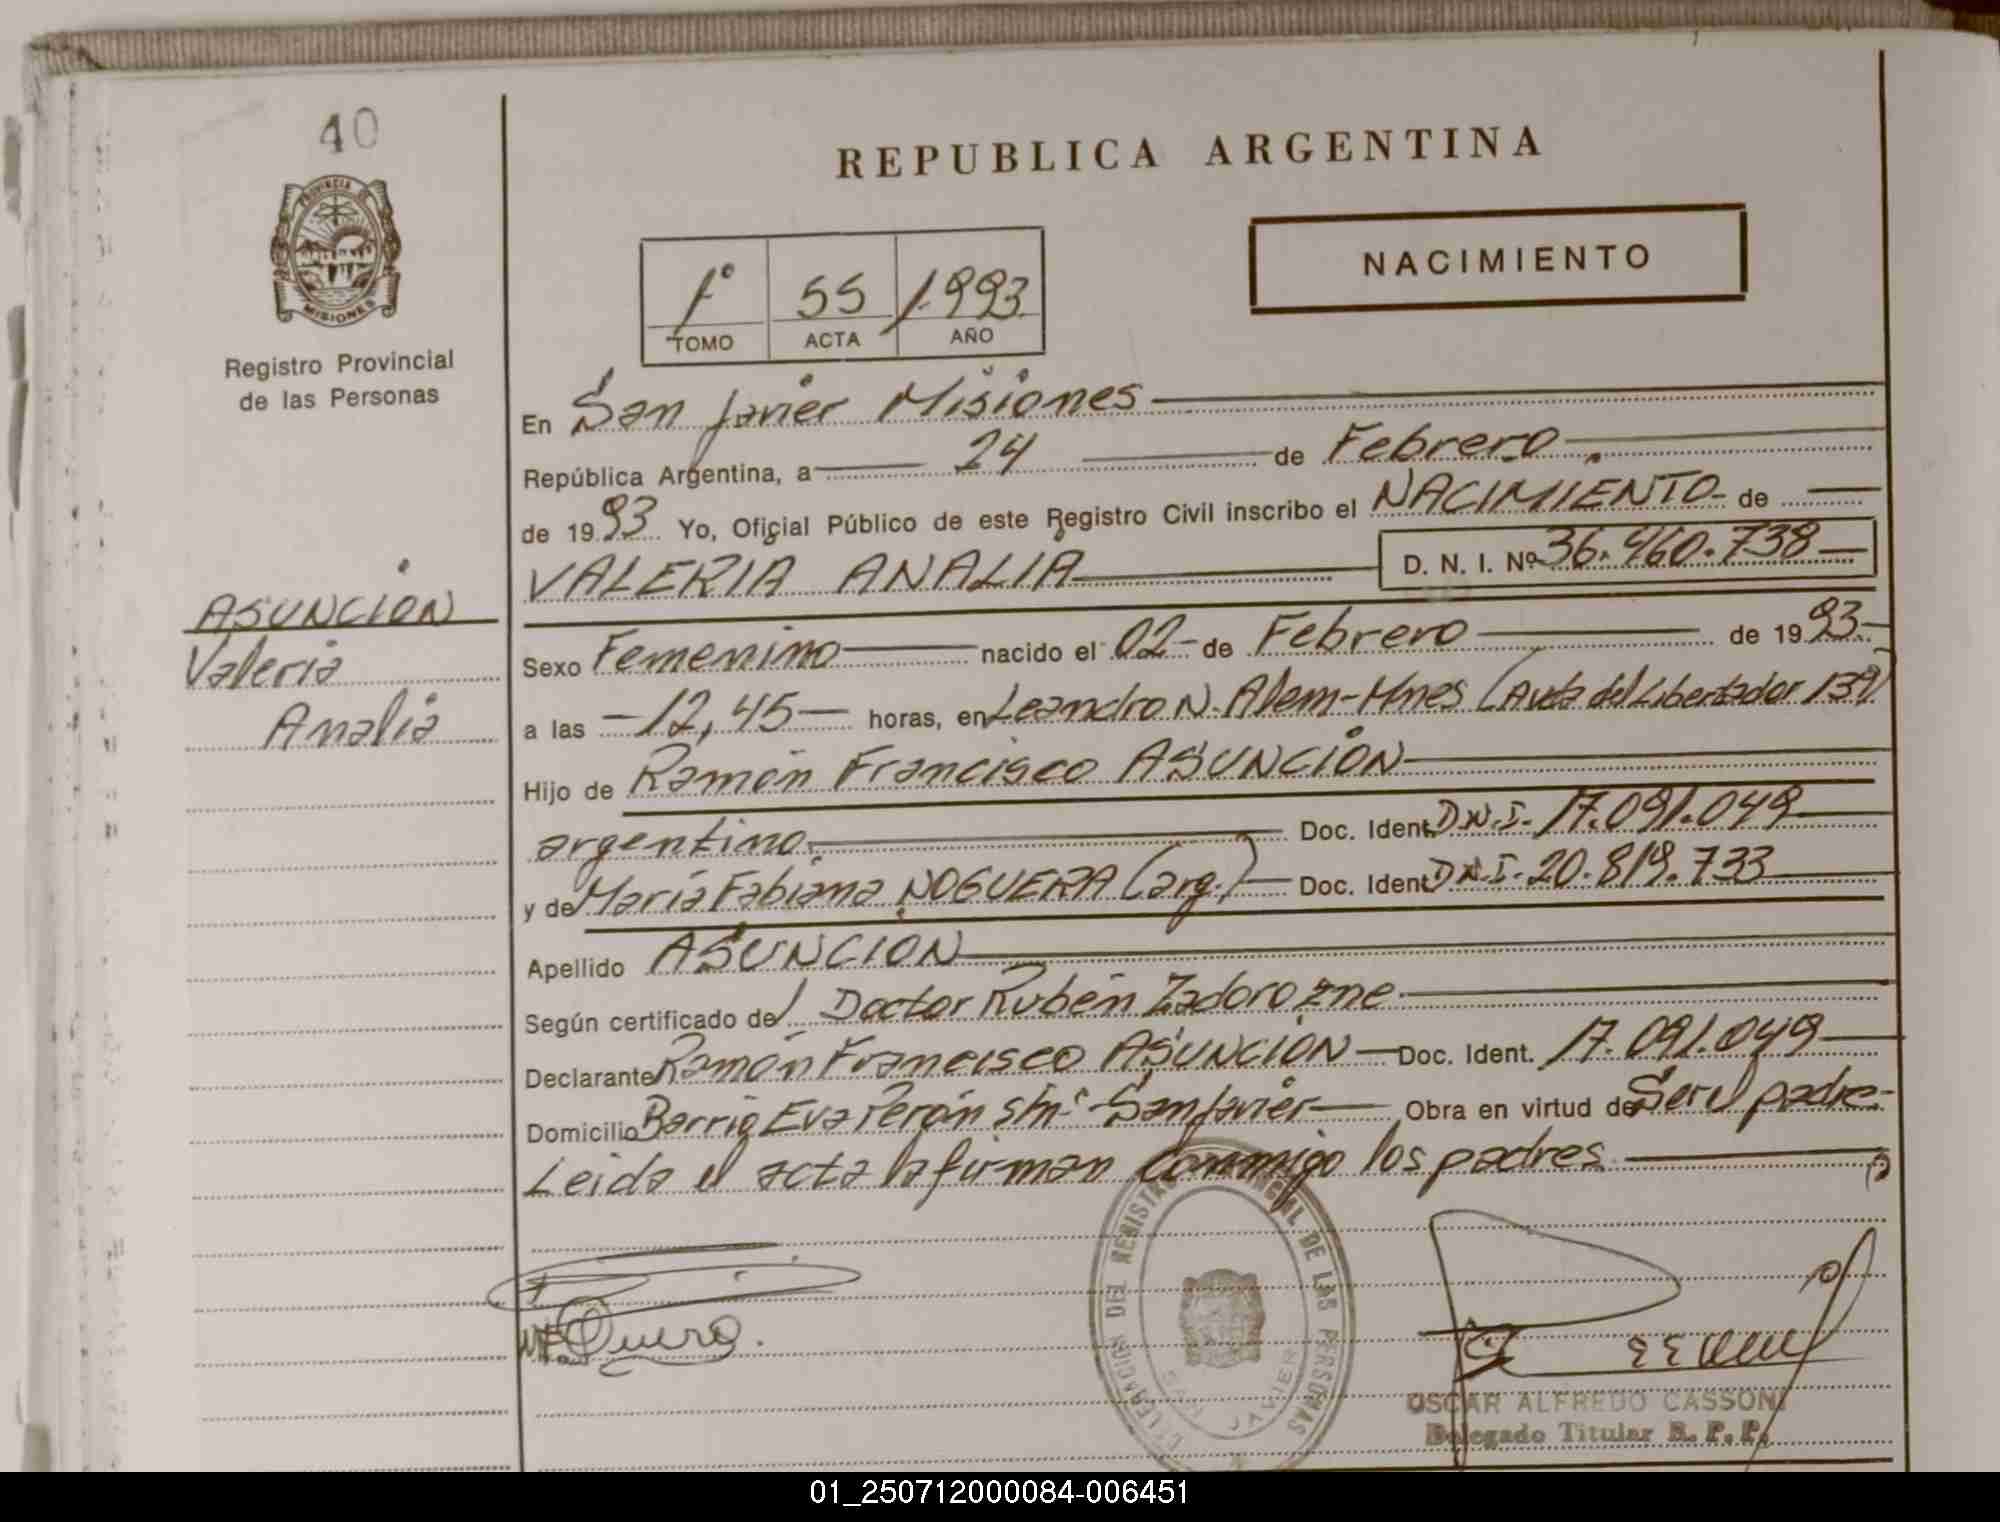 40
PROVINCIA DE
MISIONES
Registro Provincial
de las Personas
REPUBLICA ARGENTINA
NACIMIENTO
1° 55 1.993
TOMO ACTA AÑO
En San Javier Misiones
República Argentina, a 24 de Febrero
de 1993 Yo, Oficial Público de este Registro Civil inscribo el NACIMIENTO de
VALERIA ANALIA D. N. I. Nº 36.460.738
ASUNCION
Valeria
Analia
Sexo Femenino nacido el 02 de Febrero de 1993
a las 12,45 horas, en Leandro N. Alem-Mnes (Avda del Libertador 139)
Hijo de Ramón Francisco ASUNCION
argentino. Doc. Ident. D.N.I. 17.091.049
y de María Fabiana NOGUERA (arg.) Doc. Ident. D.N.I. 20.819.733
Apellido ASUNCION
Según certificado del Doctor Rubén Zadorozne
Declarante Ramón Francisco ASUNCION Doc. Ident. 17.091.049
Domicilio Barrio Eva Perón s/nº San Javier Obra en virtud de Ser el padre
Leida el acta la firman conmigo los padres
DEL REGISTRO PROVINCIAL DE LAS PERSONAS
SAN JAVIER
OSCAR ALFREDO CASSONI
Delegado Titular R. P. P.
01_250712000084-006451